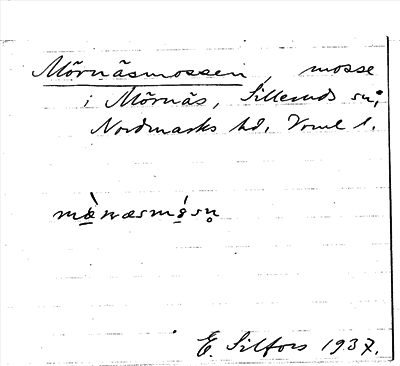 Mõrnäsmossen, mosse
i Mõrnäs, Silleruds sn;
Nordmarks hd, Vrml l.
mæ̀næsmǿsn̥
E. Silfors 1937.